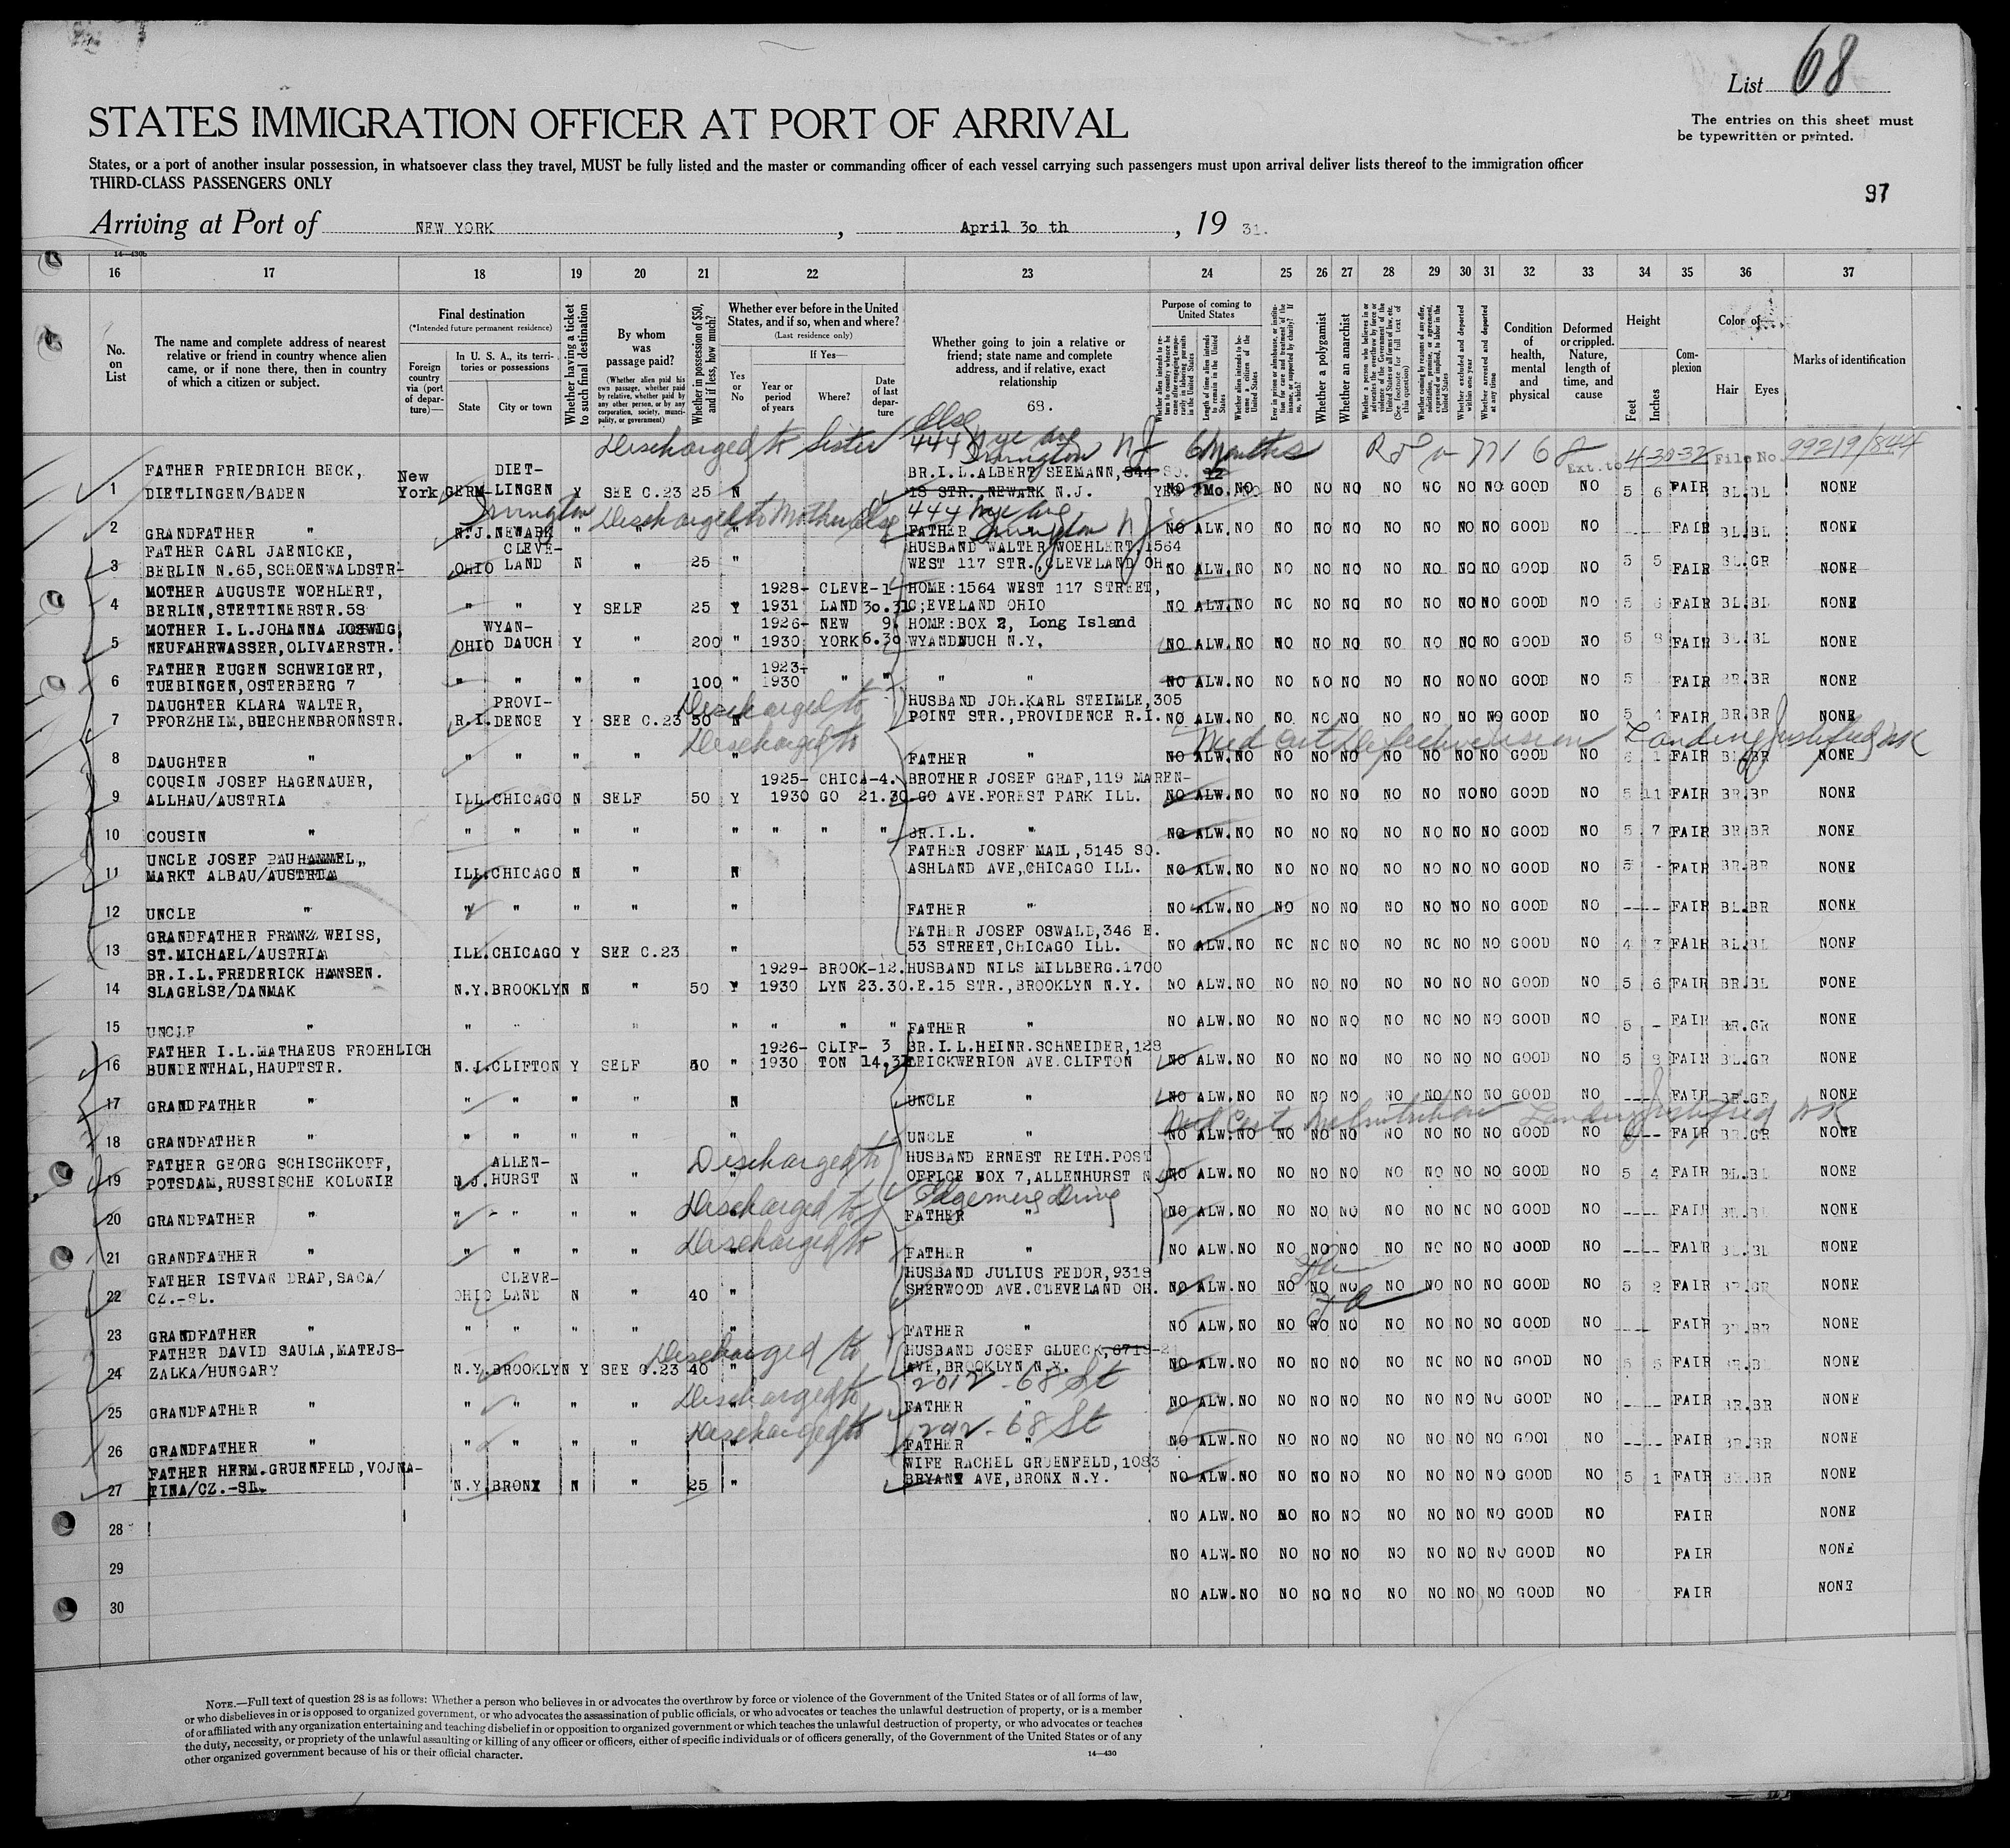 List 68
STATES IMMIGRATION OFFICER AT PORT OF ARRIVAL
The entries on this sheet must
be typewritten or printed.
States, or a port of another insular possession, in whatsoever class they travel, MUST be fully listed and the master or commanding officer of each vessel carrying such passengers must upon arrival deliver lists thereof to the immigration officer
THIRD-CLASS PASSENGERS ONLY
97
Arriving at Port of NEW YORK, April 30 th, 19 31.
14—430b
16 17 18 19 20 21 22 23 24 25 26 27 28 29 30 31 32 33 34 35 36 37
No. on List
The name and complete address of nearest relative or friend in country whence alien came, or if none there, then in country of which a citizen or subject.
Final destination
(*Intended future permanent residence)
Foreign country via (port of departure)—
In U. S. A., its territories or possessions
State City or town
Whether having a ticket to such final destination
By whom was passage paid?
(Whether alien paid his own passage, whether paid by relative, whether paid by any other person, or by any corporation, society, municipality, or government)
Whether in possession of $50, and if less, how much?
Whether ever before in the United States, and if so, when and where?
(Last residence only)
Yes or No
If Yes—
Year or period of years Where? Date of last departure
Whether going to join a relative or friend; state name and complete address, and if relative, exact relationship
68.
Purpose of coming to United States
Whether alien intends to return to country whence he came after engaging temporarily in laboring pursuits in the United States
Length of time alien intends to remain in the United States
Whether alien intends to become a citizen of the United States
Ever in prison or almshouse, or institution for care and treatment of the insane, or supported by charity? If so, which?
Whether a polygamist
Whether an anarchist
Whether a person who believes in or advocates the overthrow by force or violence of the Government of the United States or all forms of law, etc. (See footnote for full text of this question)
Whether coming by reasons of any offer, solicitation, promise, or agreement, expressed or implied, to labor in the United States
Whether excluded and deported within one year
Whether arrested and deported at any time
Condition of health, mental and physical
Deformed or crippled. Nature, length of time, and cause
Height
Feet Inches
Complexion
Color of—
Hair Eyes
Marks of identification
Discharged to Sister Else
444 Nye Ave
Irvington NJ 6 Months
Ext. to 4-30-32 File No. 99219/844
1 FATHER FRIEDRICH BECK, DIETLINGEN/BADEN New York GERM- DIET-LINGEN Y SEE C.23 25 N BR.I.L.ALBERT SEEMANN,844 SO. 18 STR.,NEWARK N.J. NO NO NO NO NO NO NO GOOD NO 5 6 FAIR BL.BL NONE
Irvington Discharged to Mother Else 444 Nye Ave
Irvington NJ
2 GRANDFATHER " N.J. NEWARK " " " FATHER NO ALW. NO NO NO NO NO NO NO NO GOOD NO FAIR BL.BL NONE
3 FATHER CARL JAENICKE, BERLIN N.65,SCHOENWALDSTR- OHIO CLEVE-LAND N " 25 " HUSBAND WALTER WOEHLERT,1564 WEST 117 STR.,CLEVELAND OH. NO ALW. NO NO NO NO NO NO NO NO GOOD NO 5 5 FAIR BL.GR NONE
4 MOTHER AUGUSTE WOEHLERT, BERLIN,STETTINERSTR.58 " " Y SELF 25 Y 1928-1931 CLEVE-LAND HOME:1564 WEST 117 STREET, C;EVELAND OHIO NO ALW. NO NO NO NO NO NO NO NO GOOD NO 5 6 FAIR BL.BL NONE
5 MOTHER I.L.JOHANNA JOSWIG, NEUFAHRWASSER,OLIVAERSTR. OHIO WYAN-DAUCH Y " 200 " 1926-1930 NEW YORK 9. 6.30 HOME:BOX 2, Long Island WYANDNUCH N.Y. NO ALW. NO NO NO NO NO NO NO NO GOOD NO 5 8 FAIR BL.BL NONE
6 FATHER EUGEN SCHWEIGERT, TUEBINGEN,OSTERBERG 7 " " " " 100 " 1923-1930 " " " " NO ALW. NO NO NO NO NO NO NO NO GOOD NO 5 FAIR BR.BR NONE
Discharged to
7 DAUGHTER KLARA WALTER, PFORZHEIM,BUECHENBRONNSTR. R.I. PROVI-DENCE Y SEE C.23 50 N HUSBAND JOH.KARL STEIMLE,305 POINT STR.,PROVIDENCE R.I. NO ALW. NO NO NO NO NO NO NO NO GOOD NO 5 4 FAIR BR.BR NONE
Discharged to Med Cert Defective vision Landing justified
8 DAUGHTER " " " " " " FATHER NO ALW. NO NO NO NO NO NO NO NO GOOD NO FAIR NONE
9 COUSIN JOSEF HAGENAUER, ALLHAU/AUSTRIA ILL. CHICAGO N SELF 50 Y 1925-1930 CHICA-GO 4. 21.30 BROTHER JOSEF GRAF,119 MAREN-GO AVE.FOREST PARK ILL. NO ALW. NO NO NO NO NO NO NO NO GOOD NO 5 11 FAIR BR.BR NONE
10 COUSIN " " " " " " " " " BR.I.L. " NO ALW. NO NO NO NO NO NO NO NO GOOD NO 5 7 FAIR BR.BR NONE
11 UNCLE JOSEF BAUHAMMEL, MARKT ALBAU/AUSTRIA ILL. CHICAGO N " N FATHER JOSEF MAIL,5145 SO. ASHLAND AVE,CHICAGO ILL. NO ALW. NO NO NO NO NO NO NO NO GOOD NO 5 - FAIR BR.BR NONE
12 UNCLE " " " " " " FATHER " NO ALW. NO NO NO NO NO NO NO NO GOOD NO ---- FAIR BL.BR NONE
13 GRANDFATHER FRANZ WEISS, ST.MICHAEL/AUSTRIA ILL. CHICAGO Y SEE C.23 " FATHER JOSEF OSWALD,346 E. 53 STREET,CHICAGO ILL. NO ALW. NO NO NO NO NO NO NO NO GOOD NO 4 3 FAIR BL.BL NONE
14 BR.I.L.FREDERICK HANSEN. SLAGELSE/DANMAK N.Y. BROOKLYN N " 50 Y 1929-1930 BROOK-LYN 12. 23.30. HUSBAND NILS MILLBERG.1700 E.15 STR.,BROOKLYN N.Y. NO ALW. NO NO NO NO NO NO NO NO GOOD NO 5 6 FAIR BR.BL NONE
15 UNCLE " " " " " " " " FATHER " NO ALW. NO NO NO NO NO NO NO NO GOOD NO 5 - FAIR BR.GR NONE
16 FATHER I.L.MATHAEUS FROEHLICH BUNDENTHAL,HAUPTSTR. N.J. CLIFTON Y SELF 50 " 1926-1930 CLIF-TON 3 BR.I.L.HEINR.SCHNEIDER,128 AVE.CLIFTON NO ALW. NO NO NO NO NO NO NO NO GOOD NO 5 8 FAIR BL.GR NONE
17 GRANDFATHER " " " " " N UNCLE " NO ALW. NO NO NO NO NO NO NO NO GOOD NO ---- FAIR BR.GR NONE
Med Cert Malnutrition Landing justified
18 GRANDFATHER " " " " " " UNCLE " NO ALW. NO NO NO NO NO NO NO NO GOOD NO ---- FAIR BR.GR NONE
Discharged to
19 FATHER GEORG SCHISCHKOFF, POTSDAM,RUSSISCHE KOLONIE N.J. ALLEN-HURST N " " HUSBAND ERNEST REITH.POST OFFICE BOX 7,ALLENHURST N. NO ALW. NO NO NO NO NO NO NO NO GOOD NO 5 4 FAIR BL.BL NONE
Discharged to Edgemere Drive
20 GRANDFATHER " " " " " FATHER " NO ALW. NO NO NO NO NO NO NO NO GOOD NO ---- FAIR BL.BL NONE
Discharged to
21 GRANDFATHER " " " " " FATHER " NO ALW. NO NO NO NO NO NO NO NO GOOD NO ---- FAIR BL.BL NONE
22 FATHER ISTVAN DRAP,SACA/ CZ.-SL. OHIO CLEVE-LAND N " 40 " HUSBAND JULIUS FEDOR,9318 SHERWOOD AVE.CLEVELAND OH. NO ALW. NO NO NO NO NO NO NO NO GOOD NO 5 2 FAIR BR.GR NONE
23 GRANDFATHER " " " " " " FATHER " NO ALW. NO NO NO NO NO NO NO NO GOOD NO ---- FAIR BR.BR NONE
Discharged to
24 FATHER DAVID SAULA,MATEJS-ZALKA/HUNGARY N.Y. BROOKLYN Y SEE C.23 40 " HUSBAND JOSEF GLUECK,6718-2 AVE,BROOKLYN N.Y. NO ALW. NO NO NO NO NO NO NO NO GOOD NO 5 5 FAIR BR.BL NONE
Discharged to 2012 - 68 St
25 GRANDFATHER " " " " " " FATHER " NO ALW. NO NO NO NO NO NO NO NO GOOD NO ---- FAIR BR.BR NONE
Discharged to 68 St
26 GRANDFATHER " " " " " " FATHER " NO ALW. NO NO NO NO NO NO NO NO GOOD NO ---- FAIR BR.BR NONE
27 FATHER HERM.GRUENFELD,VOJNA-TINA/CZ.-SL. N.Y. BRONX N " 25 " WIFE RACHEL GRUENFELD,1083 BRYANT AVE,BRONX N.Y. NO ALW. NO NO NO NO NO NO NO NO GOOD NO 5 1 FAIR BR.BR NONE
28 NO ALW. NO NO NO NO NO NO NO NO GOOD NO FAIR NONE
29 NO ALW. NO NO NO NO NO NO NO NO GOOD NO FAIR NONE
30 NO ALW. NO NO NO NO NO NO NO NO GOOD NO FAIR NONE
NOTE.—Full text of question 28 is as follows: Whether a person who believes in or advocates the overthrow by force or violence of the Government of the United States or of all forms of law,
or who disbelieves in or is opposed to organized government, or who advocates the assassination of public officials, or who advocates or teaches the unlawful destruction of property, or is a member
of or affiliated with any organization entertaining and teaching disbelief in or opposition to organized government or which teaches the unlawful destruction of property, or who advocates or teaches
the duty, necessity, or propriety of the unlawful assaulting or killing of any officer or officers, either of specific individuals or of officers generally, of the Government of the United States or of any
other organized government because of his or their official character.
14—430